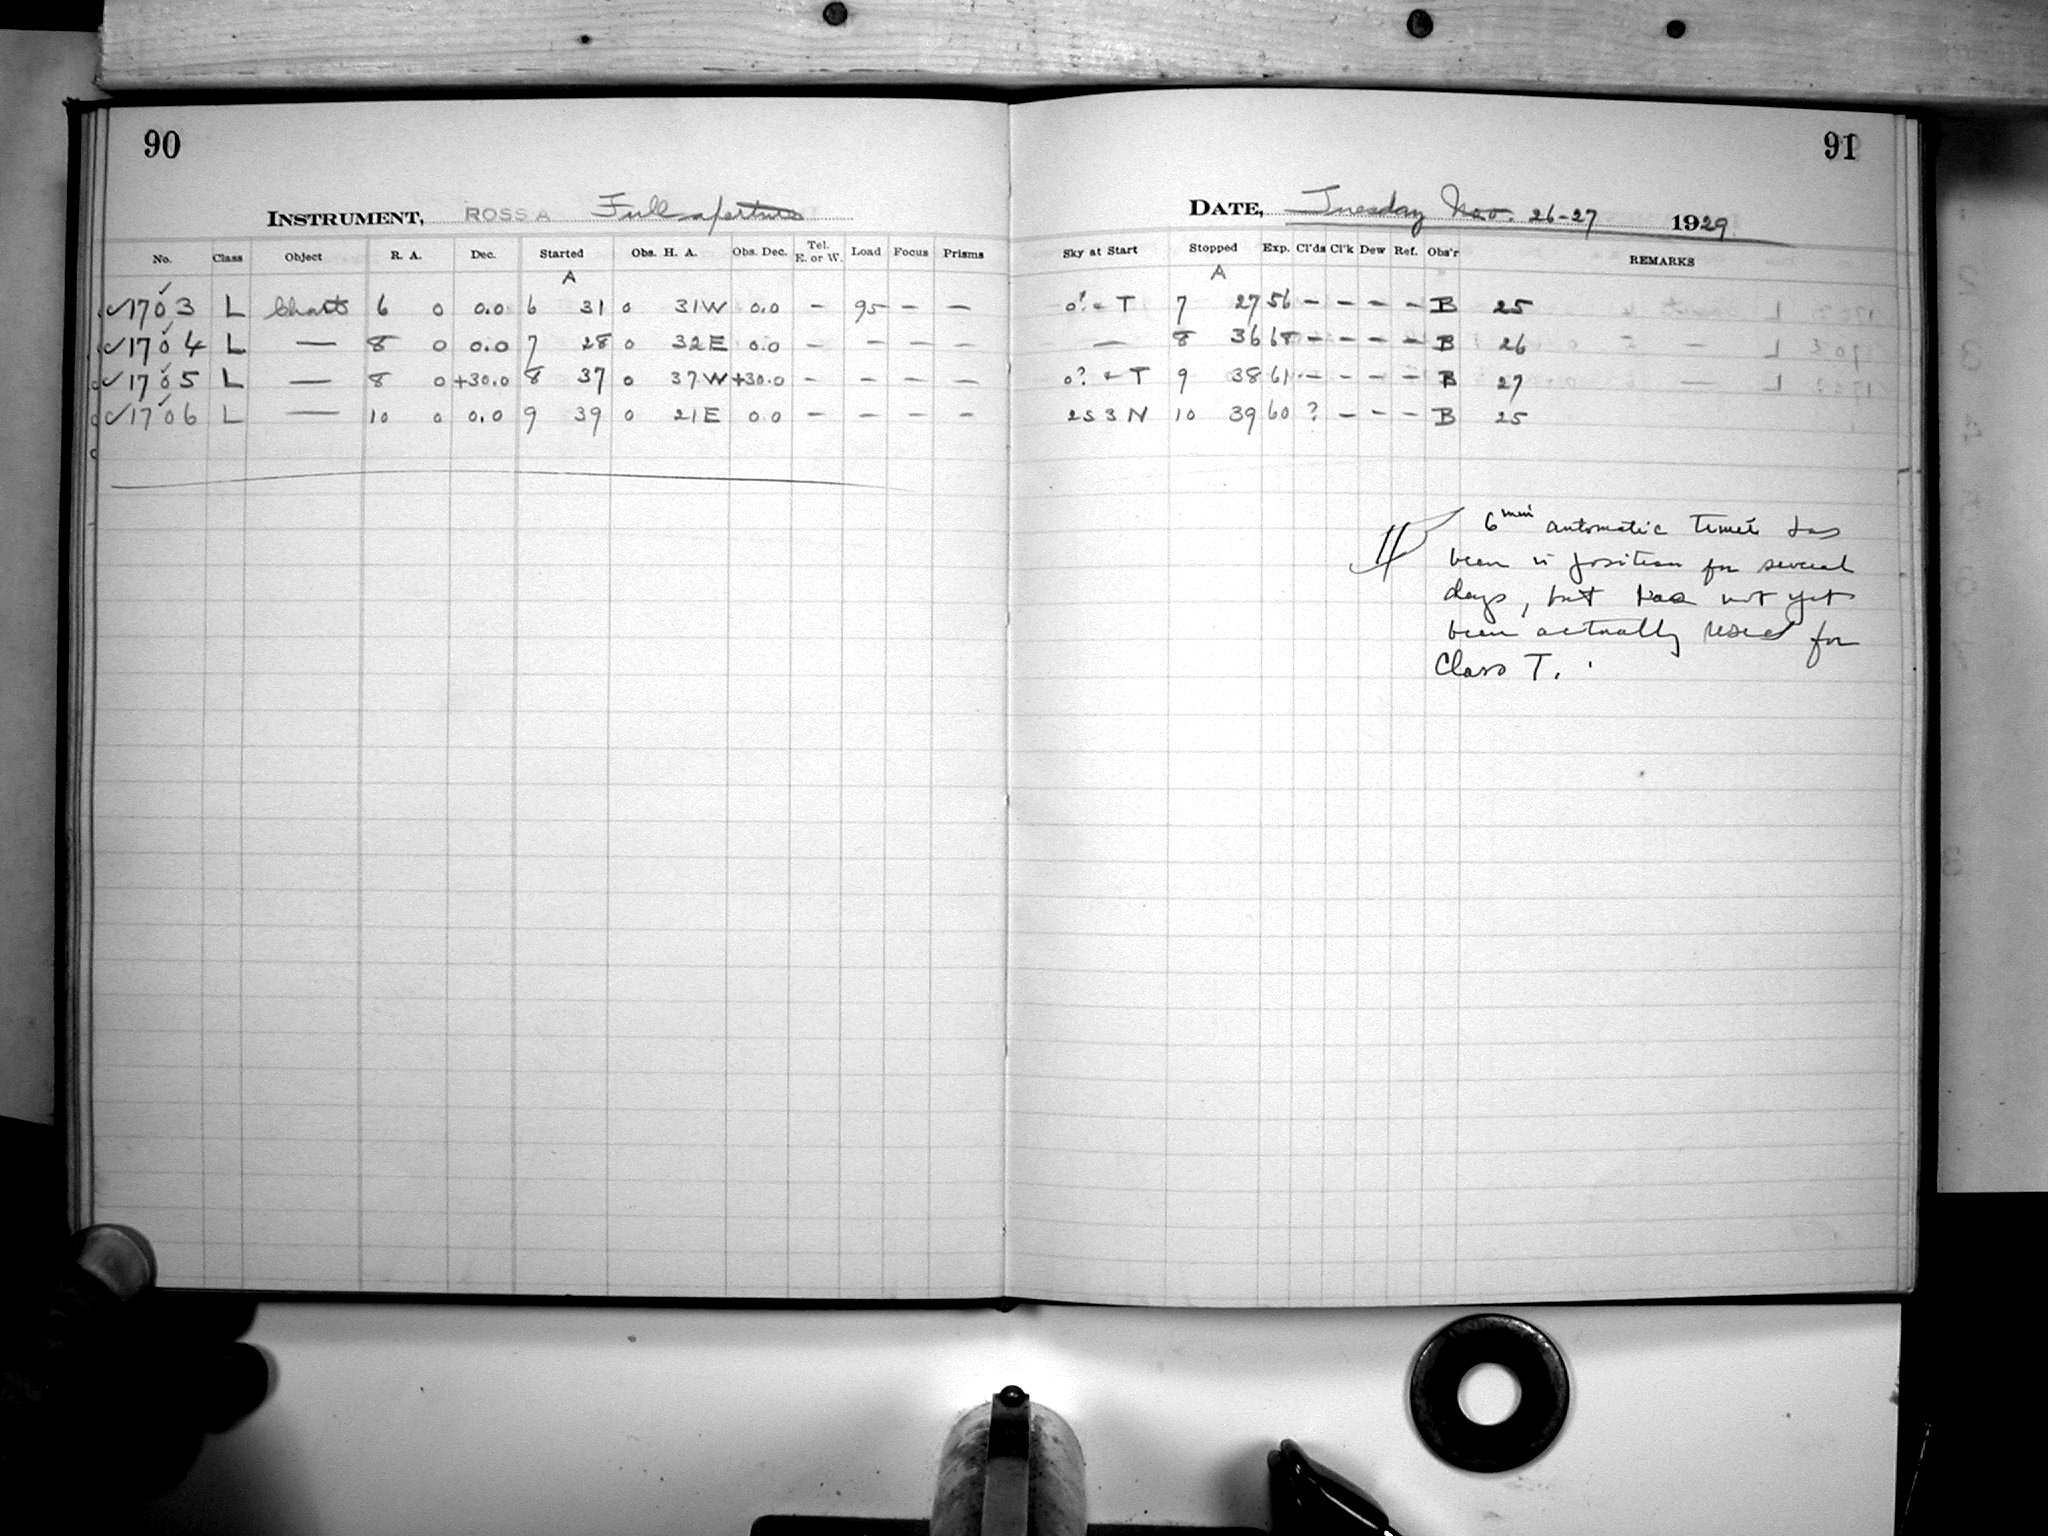 90
INSTRUMENT, ROSS A Full aperture
No. Class Object R. A. Dec. Started Obs. H. A. Obs. Dec. Tel. E. or W. Load Focus Prisms
A
✓1703 L Charts 6 0 0.0 6 31 0 31W 0.0 - 95 - -
✓1704 L — 8 0 0.0 7 28 0 32E 0.0 - - - -
✓1705 L — 8 0 +30.0 8 37 0 37W +30.0 - - - -
✓1706 L — 10 0 0.0 9 39 0 21E 0.0 - - - -
91
DATE, Tuesday Nov. 26-27 1929
Sky at Start Stopped Exp. Cl'ds Cl'k Dew Ref. Obs'r REMARKS
A
0? & T 7 27 56 - - - - B 25
— 8 36 68 - - - - B 26
0? & T 9 38 61 - - - - B 27
2S 3N 10 39 60 ? - - - B 25
6 min automatic timer has
been in position for several
days, but has not yet
been actually used for
Class T.